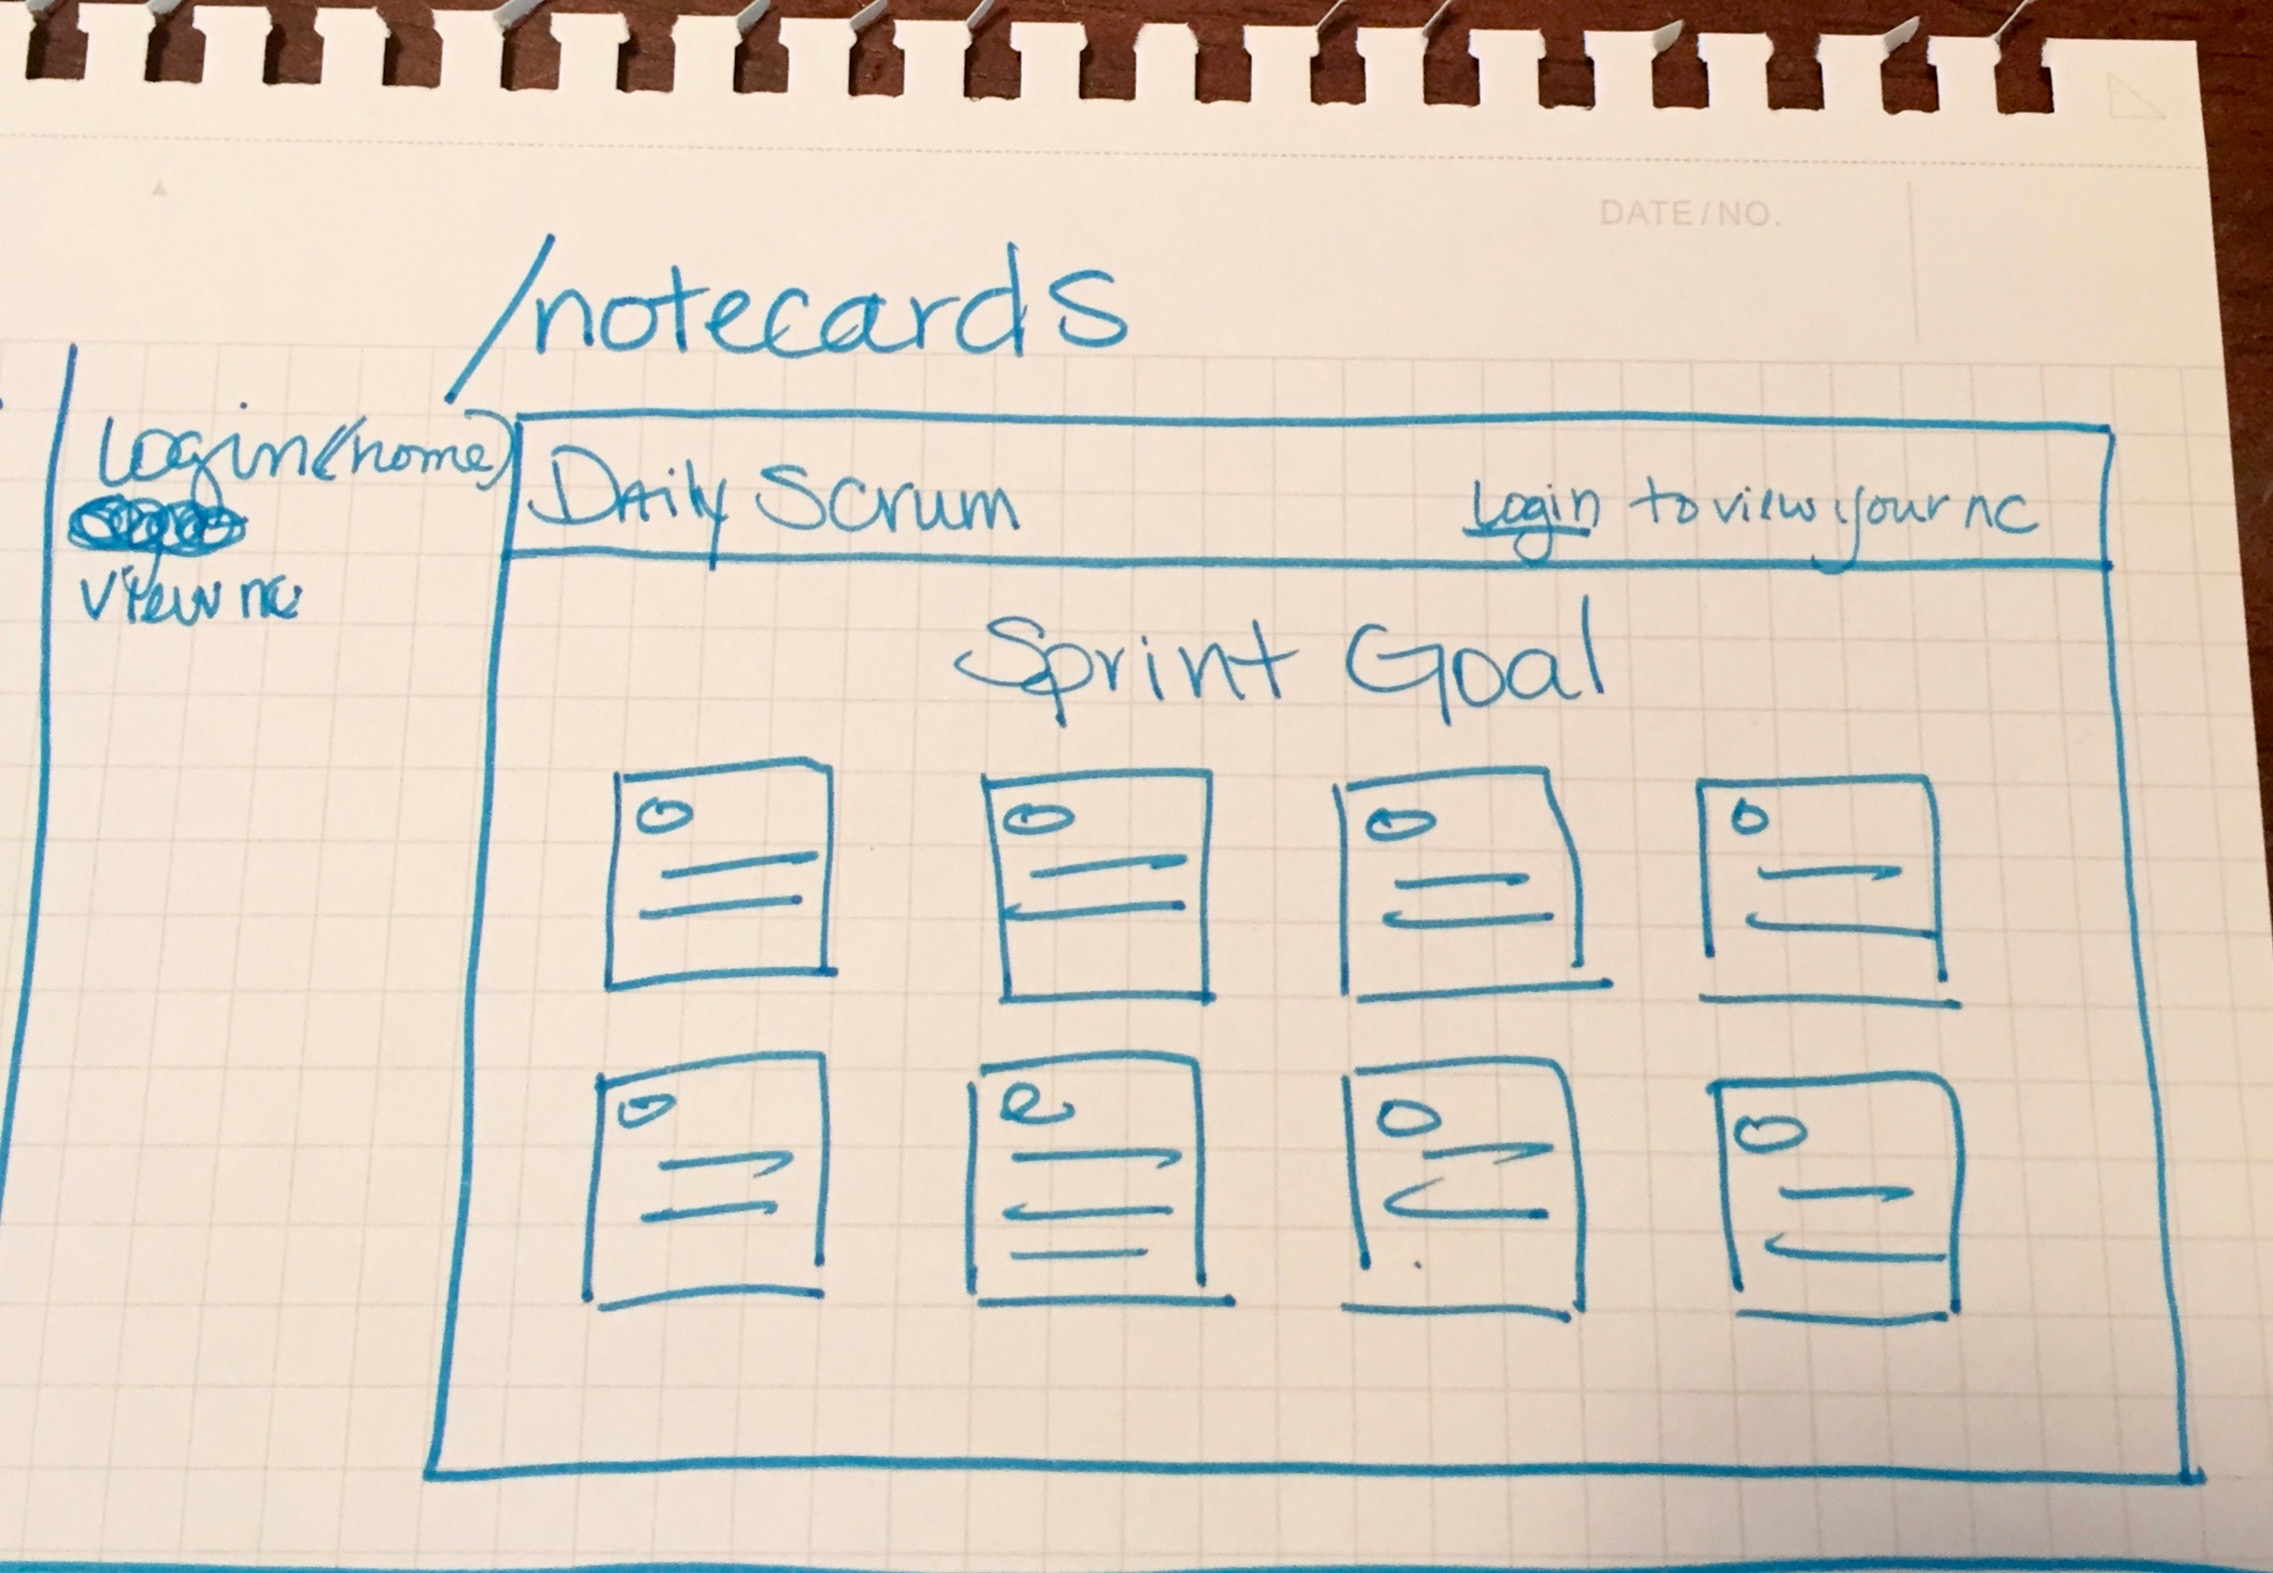 DATE/NO.
/notecards
Login (home)
view nc
Daily Scrum
Login to view your nc
Sprint Goal